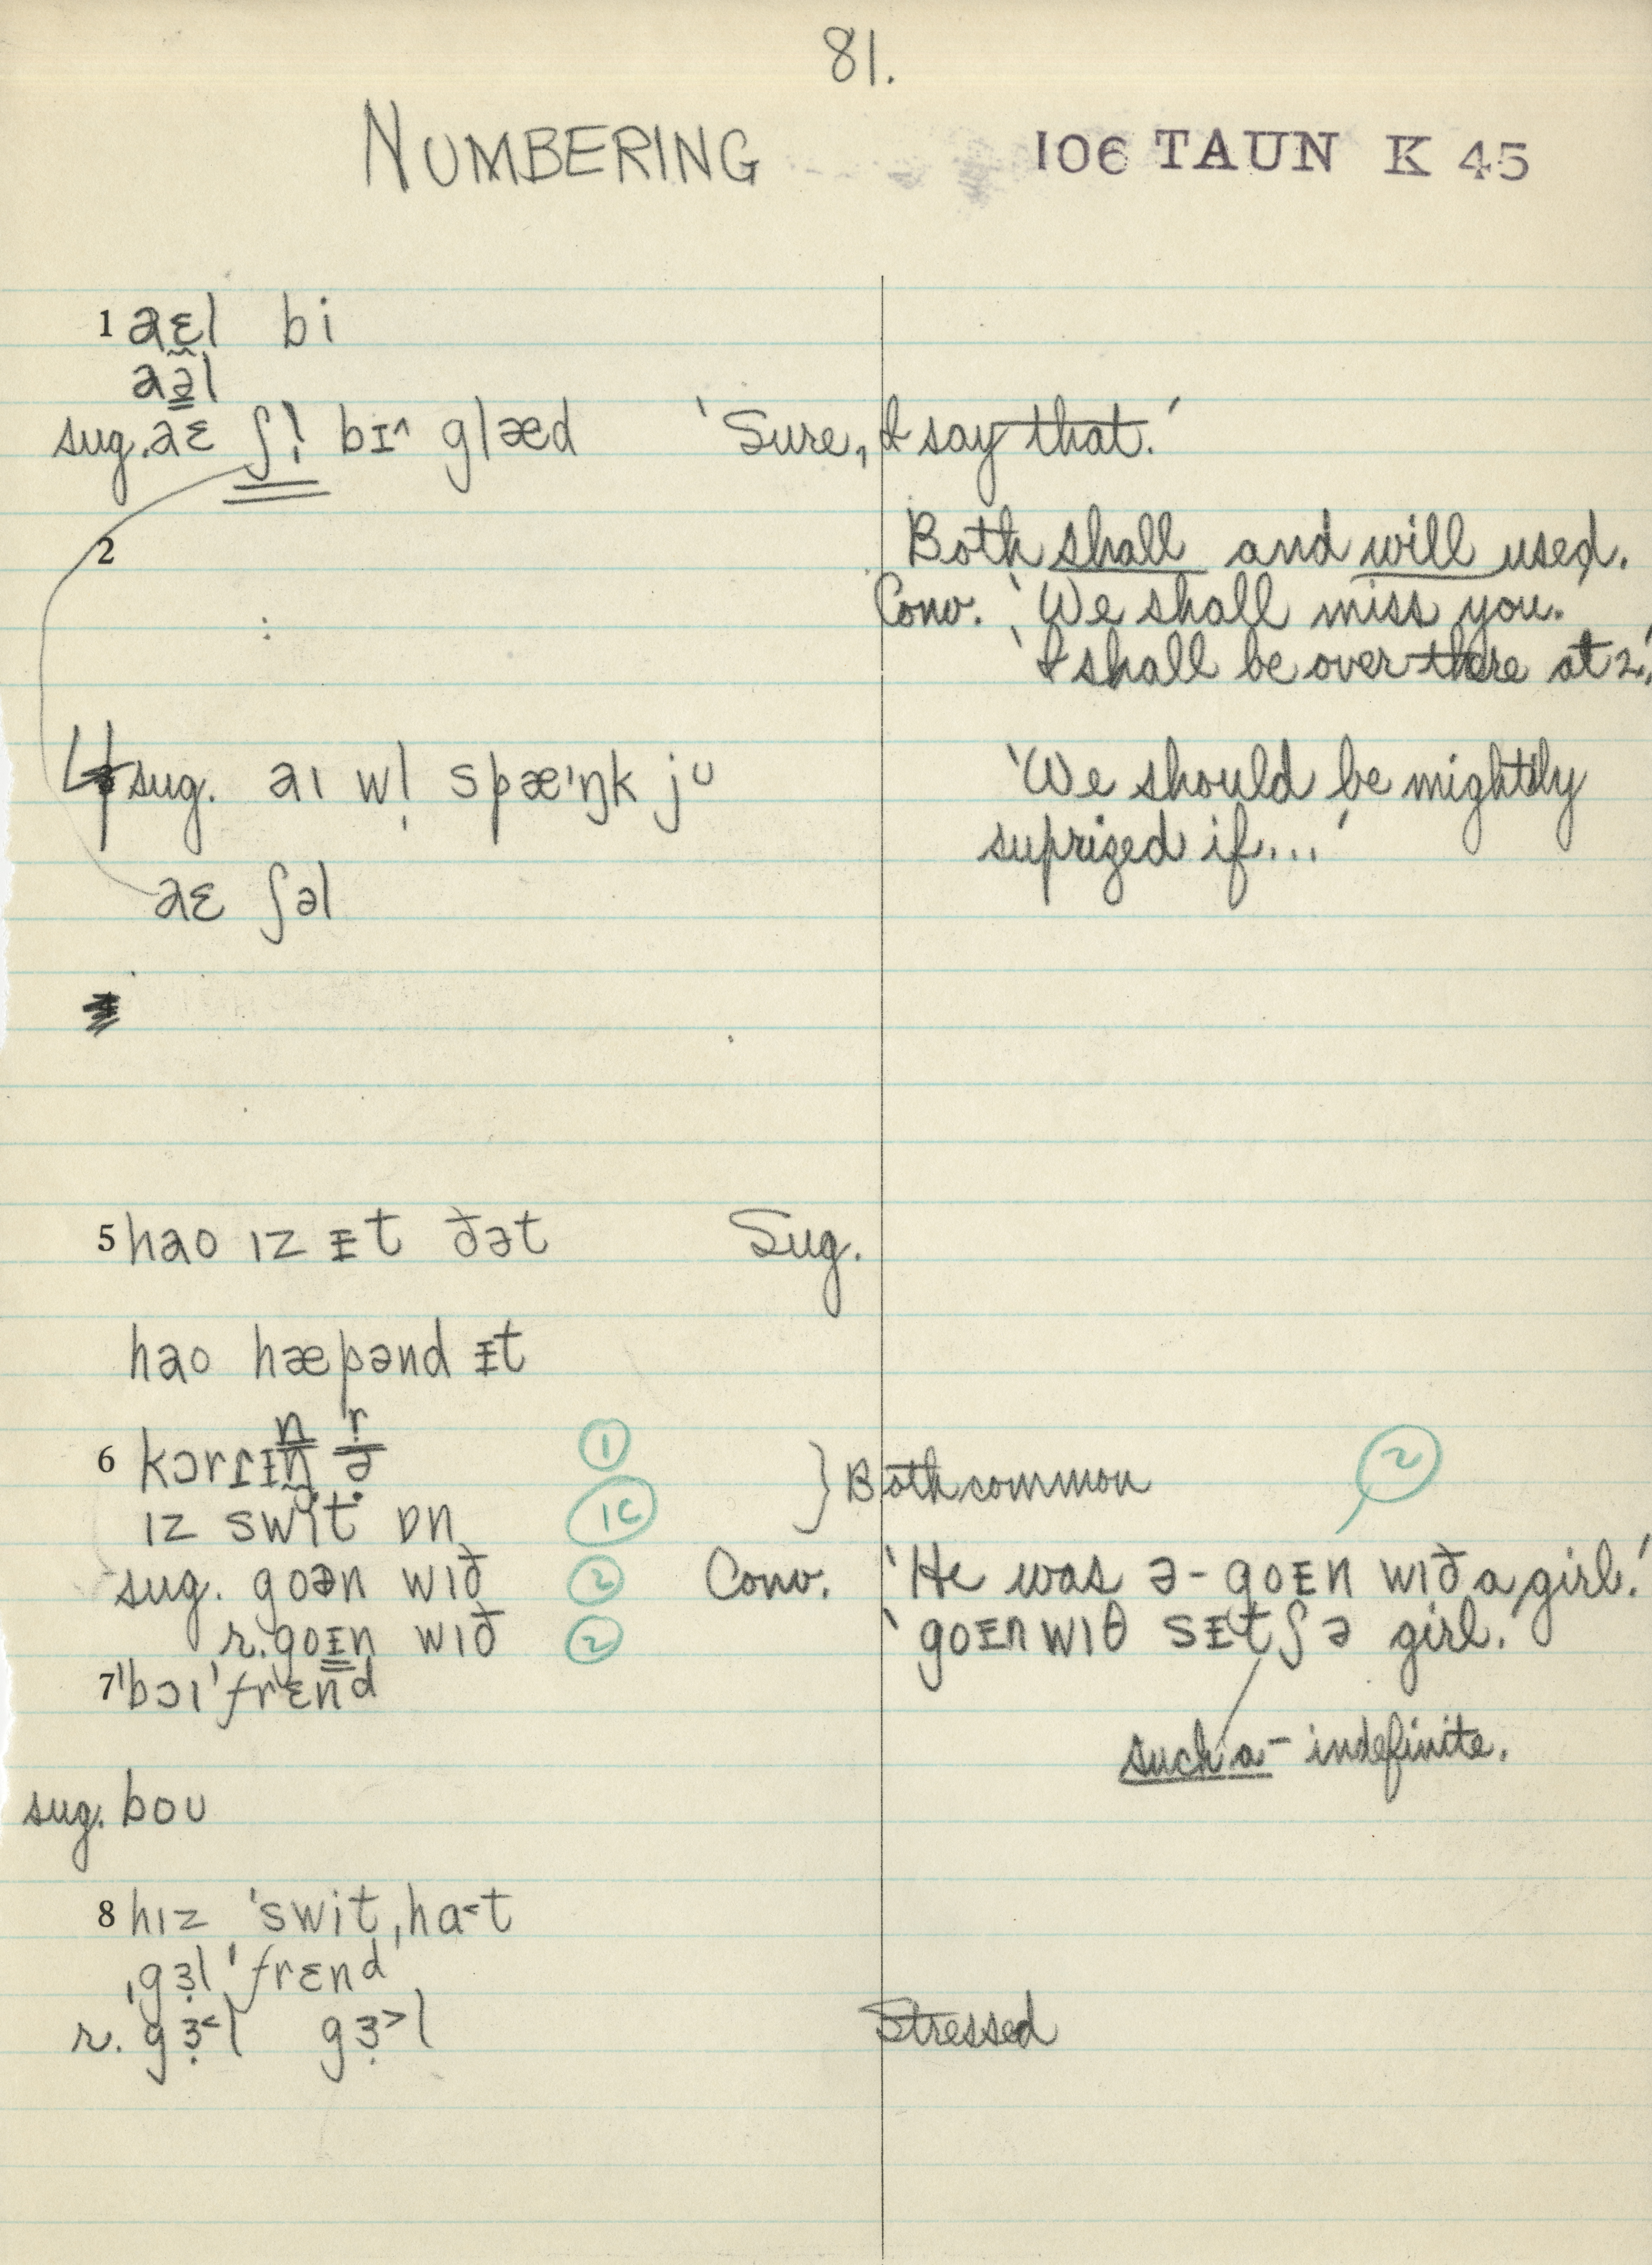 81.
NUMBERING 106 TAUN K 45
1 aɛl bi
aəl
sug. aɛ ʃl̩ bɪ^ glæd 'Sure, I say that.'
2 Both shall and will used.
Conv. 'We shall miss you.'
'I shall be over there at 2.'
4 sug. aɪ wl̩ spæ'ŋk ju 'We should be mightily
suprized if...'
aɛ ʃəl
5 hao ɪz ᵻt ðət Sug.
hao hæpənd ᵻt
6 kɔrɪᵻn r̩ ① } Both common ②
ɪz swit ɒn ①c
sug. goən wɪð ② Conv. 'He was ə-goᵻn wɪð a girl.'
r. goᵻn wɪð ② 'goᵻn wɪθ sᵻtʃ ə girl.'
7 'bɔɪ'frɛnd
such a - indefinite.
sug. boʊ
8 hɪz 'swit,ha˂t
,gɜ̣l 'frɛnd
r. gɜ̣˂l gɜ̣˃l Stressed